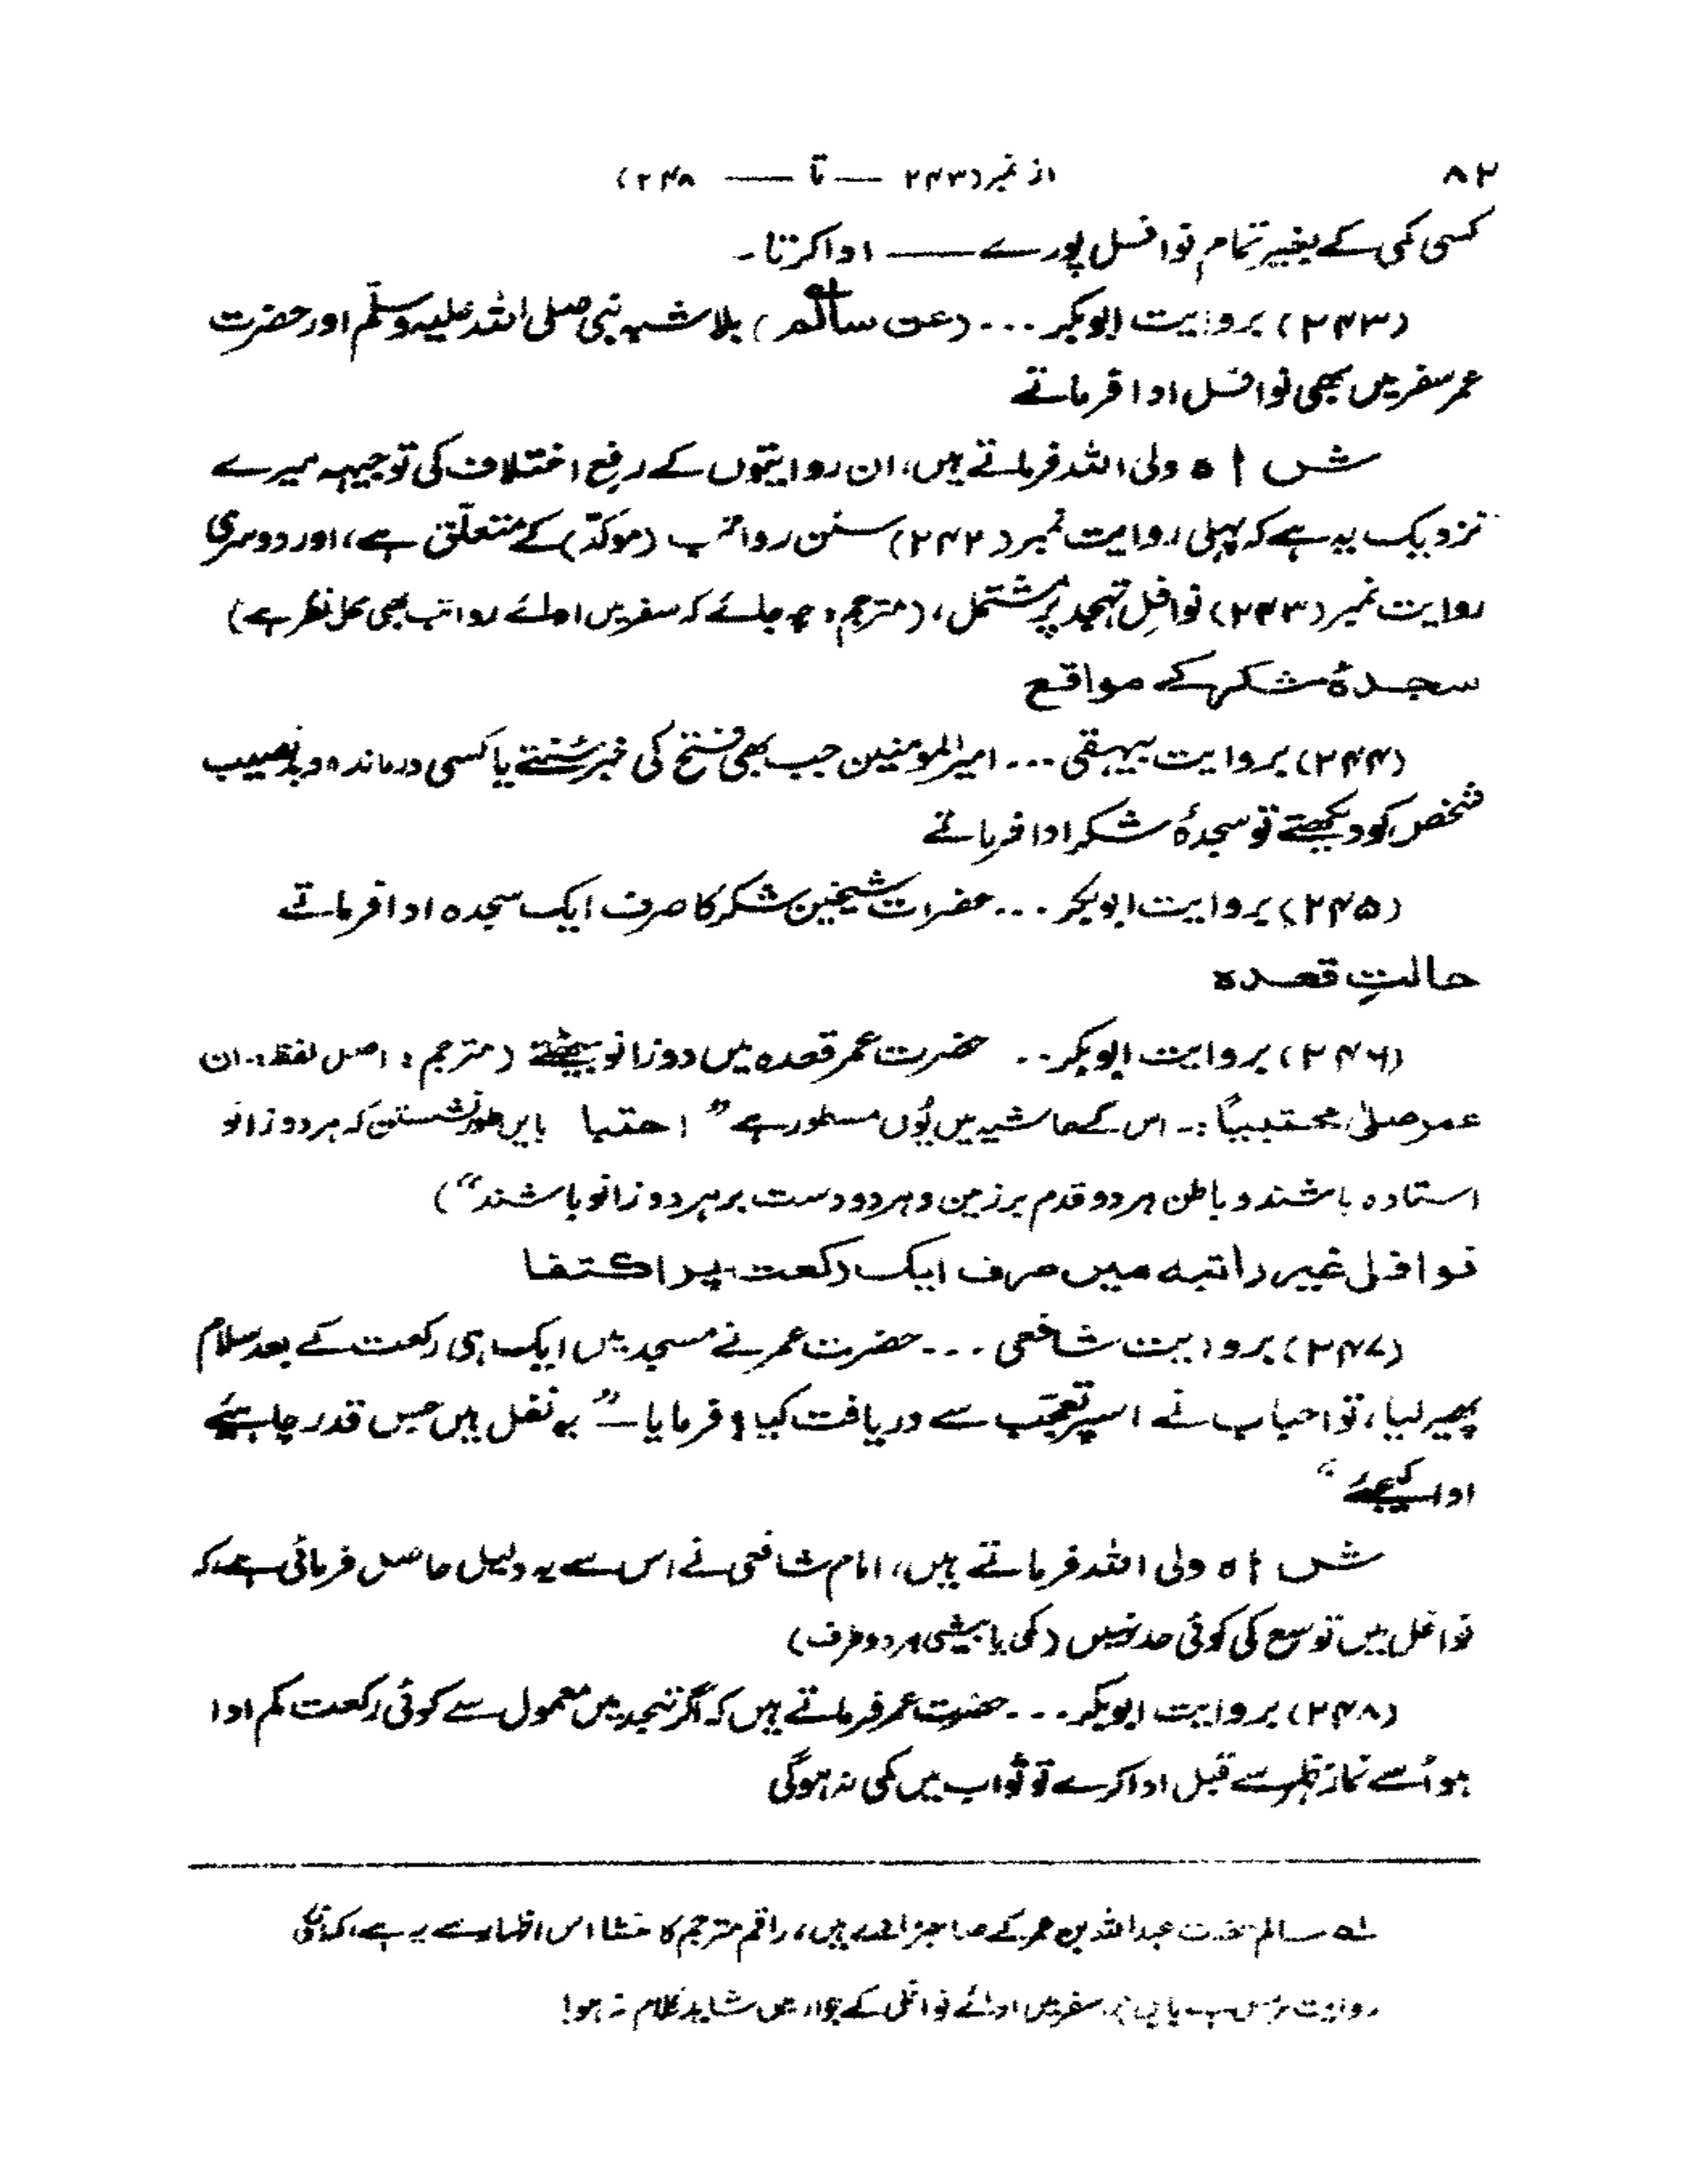 ۸۲ از نمبر (۲۴۳ — تا — ۲۴۸)
کسی کمی کے بغیر تمام نوافل پورے — ادا کرتا۔
(۲۴۳) بروایت ابوبکر ... (عن سالم) بلاشبہ نبی صلی اللہ علیہ وسلّم اور حضرت
عمر سفر میں بھی نوافل ادا فرماتے
شاہ ولی اللہ فرماتے ہیں، ان روایتوں کے رفع اختلاف کی توجیہہ میرے
نزدیک یہ ہے کہ پہلی روایت نمبر (۲۴۲) سنن رواتب (موکدّ) کے متعلّق ہے، اور دوسری
روایت نمبر (۲۴۳) نوافلِ تہجد پر مشتمل، (مترجم: چہ جائے کہ سفر میں ادائے رواتب بھی محل نظر ہے)
سجدۂ شکر کے مواقع
(۲۴۴) بروایت بیہقی ... امیر المومنین جب بھی فتح کی خبر سُنتے یا کسی درماندہ و بدنصیب
شخص کو دیکھتے تو سجدۂ شکر ادا فرماتے
(۲۴۵) بروایت ابوبکر ... حضرات شیخین شکر کا صرف ایک سجدہ ادا فرماتے
حالتِ قعدہ
(۲۴۶) بروایت ابوبکر .. حضرت عمر قعدہ میں دوزانو بیٹھتے (مترجم: اصل لفظ:۔ ان
عمر صلیٰ محتبیاً :۔ اس کے حاشیہ میں یُوں مسطور ہے ” احتبا بایں طور نشستن کہ ہر دو زانو
استادہ باشند و باطن ہر دو قدم بر زمین و ہر دو دست بر ہر دو زانو باشند“)
نوافل غیر راتبہ میں صرف ایک رکعت پر اکتفا
(۲۴۷) بروایت شافعی ... حضرت عمر نے مسجد میں ایک ہی رکعت کے بعد سلام
پھیر لیا، تو احباب نے اسپر تعجّب سے دریافت کیا؟ فرمایا — ” یہ نفل ہیں جس قدر چاہیئے
ادا کیجئے “
شاہ ولی اللہ فرماتے ہیں، امام شافعی نے اس سے یہ دلیل حاصل فرمائی ہے کہ
نوافل میں توسع کی کوئی حد نہیں (کمی یا بیشی ہر دو طرف)
(۲۴۸) بروایت ابوبکر ... حضرت عمر فرماتے ہیں کہ اگر تہجد میں معمول سے کوئی رکعت کم ادا
ہو اُسے نماز ظہر سے قبل ادا کرے تو ثواب میں کمی نہ ہوگی
لہ سالم حضرت عبداللہ بن عمر کے صاحبزادے ہیں، راقم مترجم کا منشا اس اظہار سے یہ ہے، کہ
روایت سفر میں ادائے نوافل کے جواز میں شاید کلام نہ ہو!